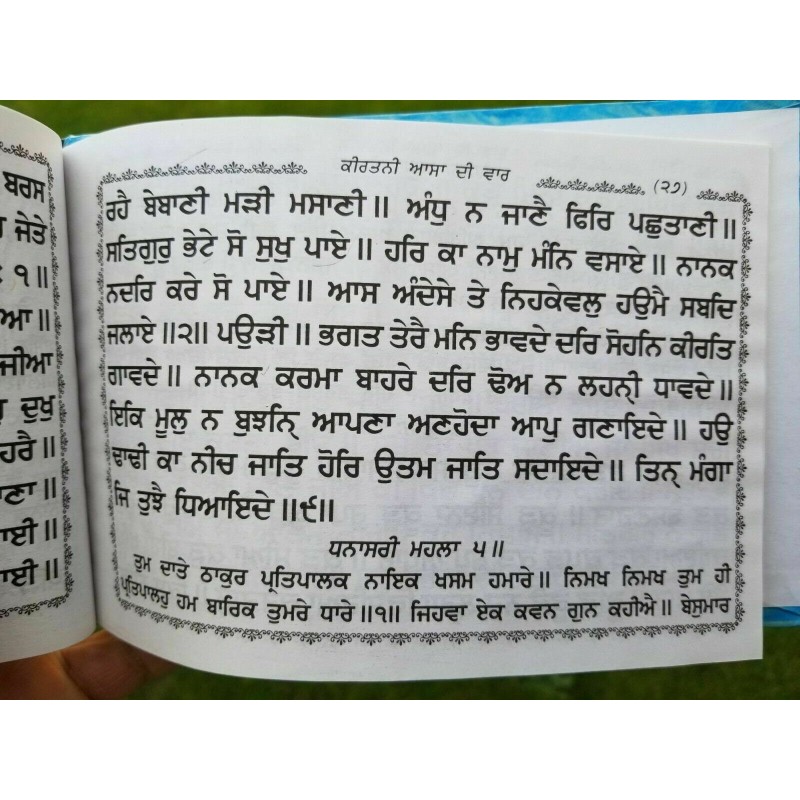 ਬਰਸ
ਜੇਤੇ
੧॥
ਆ॥
ਜੀਆ
ਦੁਖੁ
ਹਰੈ॥
ਣਾ॥
ਈ॥
ਈ॥
ਕੀਰਤਨੀ ਆਸਾ ਦੀ ਵਾਰ
(੨੭)
ਰਹੈ ਬੇਬਾਣੀ ਮੜੀ ਮਸਾਣੀ॥ ਅੰਧੁ ਨ ਜਾਣੈ ਫਿਰਿ ਪਛੁਤਾਣੀ॥
ਸਤਿਗੁਰੁ ਭੇਟੇ ਸੋ ਸੁਖੁ ਪਾਏ॥ ਹਰਿ ਕਾ ਨਾਮੁ ਮੰਨਿ ਵਸਾਏ॥ ਨਾਨਕ
ਨਦਰਿ ਕਰੇ ਸੋ ਪਾਏ॥ ਆਸ ਅੰਦੇਸੇ ਤੇ ਨਿਹਕੇਵਲੁ ਹਉਮੈ ਸਬਦਿ
ਜਲਾਏ॥੨॥ ਪਉੜੀ॥ ਭਗਤ ਤੇਰੈ ਮਨਿ ਭਾਵਦੇ ਦਰਿ ਸੋਹਨਿ ਕੀਰਤਿ
ਗਾਵਦੇ॥ ਨਾਨਕ ਕਰਮਾ ਬਾਹਰੇ ਦਰਿ ਢੋਅ ਨ ਲਹਨ੍ਹੀ ਧਾਵਦੇ॥
ਇਕਿ ਮੂਲੁ ਨ ਬੁਝਨ੍ਹਿ ਆਪਣਾ ਅਣਹੋਦਾ ਆਪੁ ਗਣਾਇਦੇ॥ ਹਉ
ਢਾਢੀ ਕਾ ਨੀਚ ਜਾਤਿ ਹੋਰਿ ਉਤਮ ਜਾਤਿ ਸਦਾਇਦੇ॥ ਤਿਨ੍ਹ ਮੰਗਾ
ਜਿ ਤੁਝੈ ਧਿਆਇਦੇ॥੯॥
ਧਨਾਸਰੀ ਮਹਲਾ ੫॥
ਤੁਮ ਦਾਤੇ ਠਾਕੁਰ ਪ੍ਰਤਿਪਾਲਕ ਨਾਇਕ ਖਸਮ ਹਮਾਰੇ॥ ਨਿਮਖ ਨਿਮਖ ਤੁਮ ਹੀ
ਪ੍ਰਤਿਪਾਲਹੁ ਹਮ ਬਾਰਿਕ ਤੁਮਰੇ ਧਾਰੇ॥੧॥ ਜਿਹਵਾ ਏਕ ਕਵਨ ਗੁਨ ਕਹੀਐ॥ ਬੇਸੁਮਾਰ